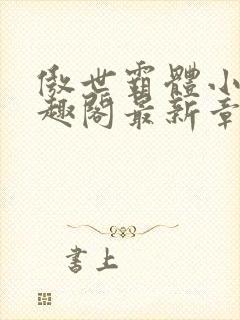 傲世霸體小
趣閣最新章
書上